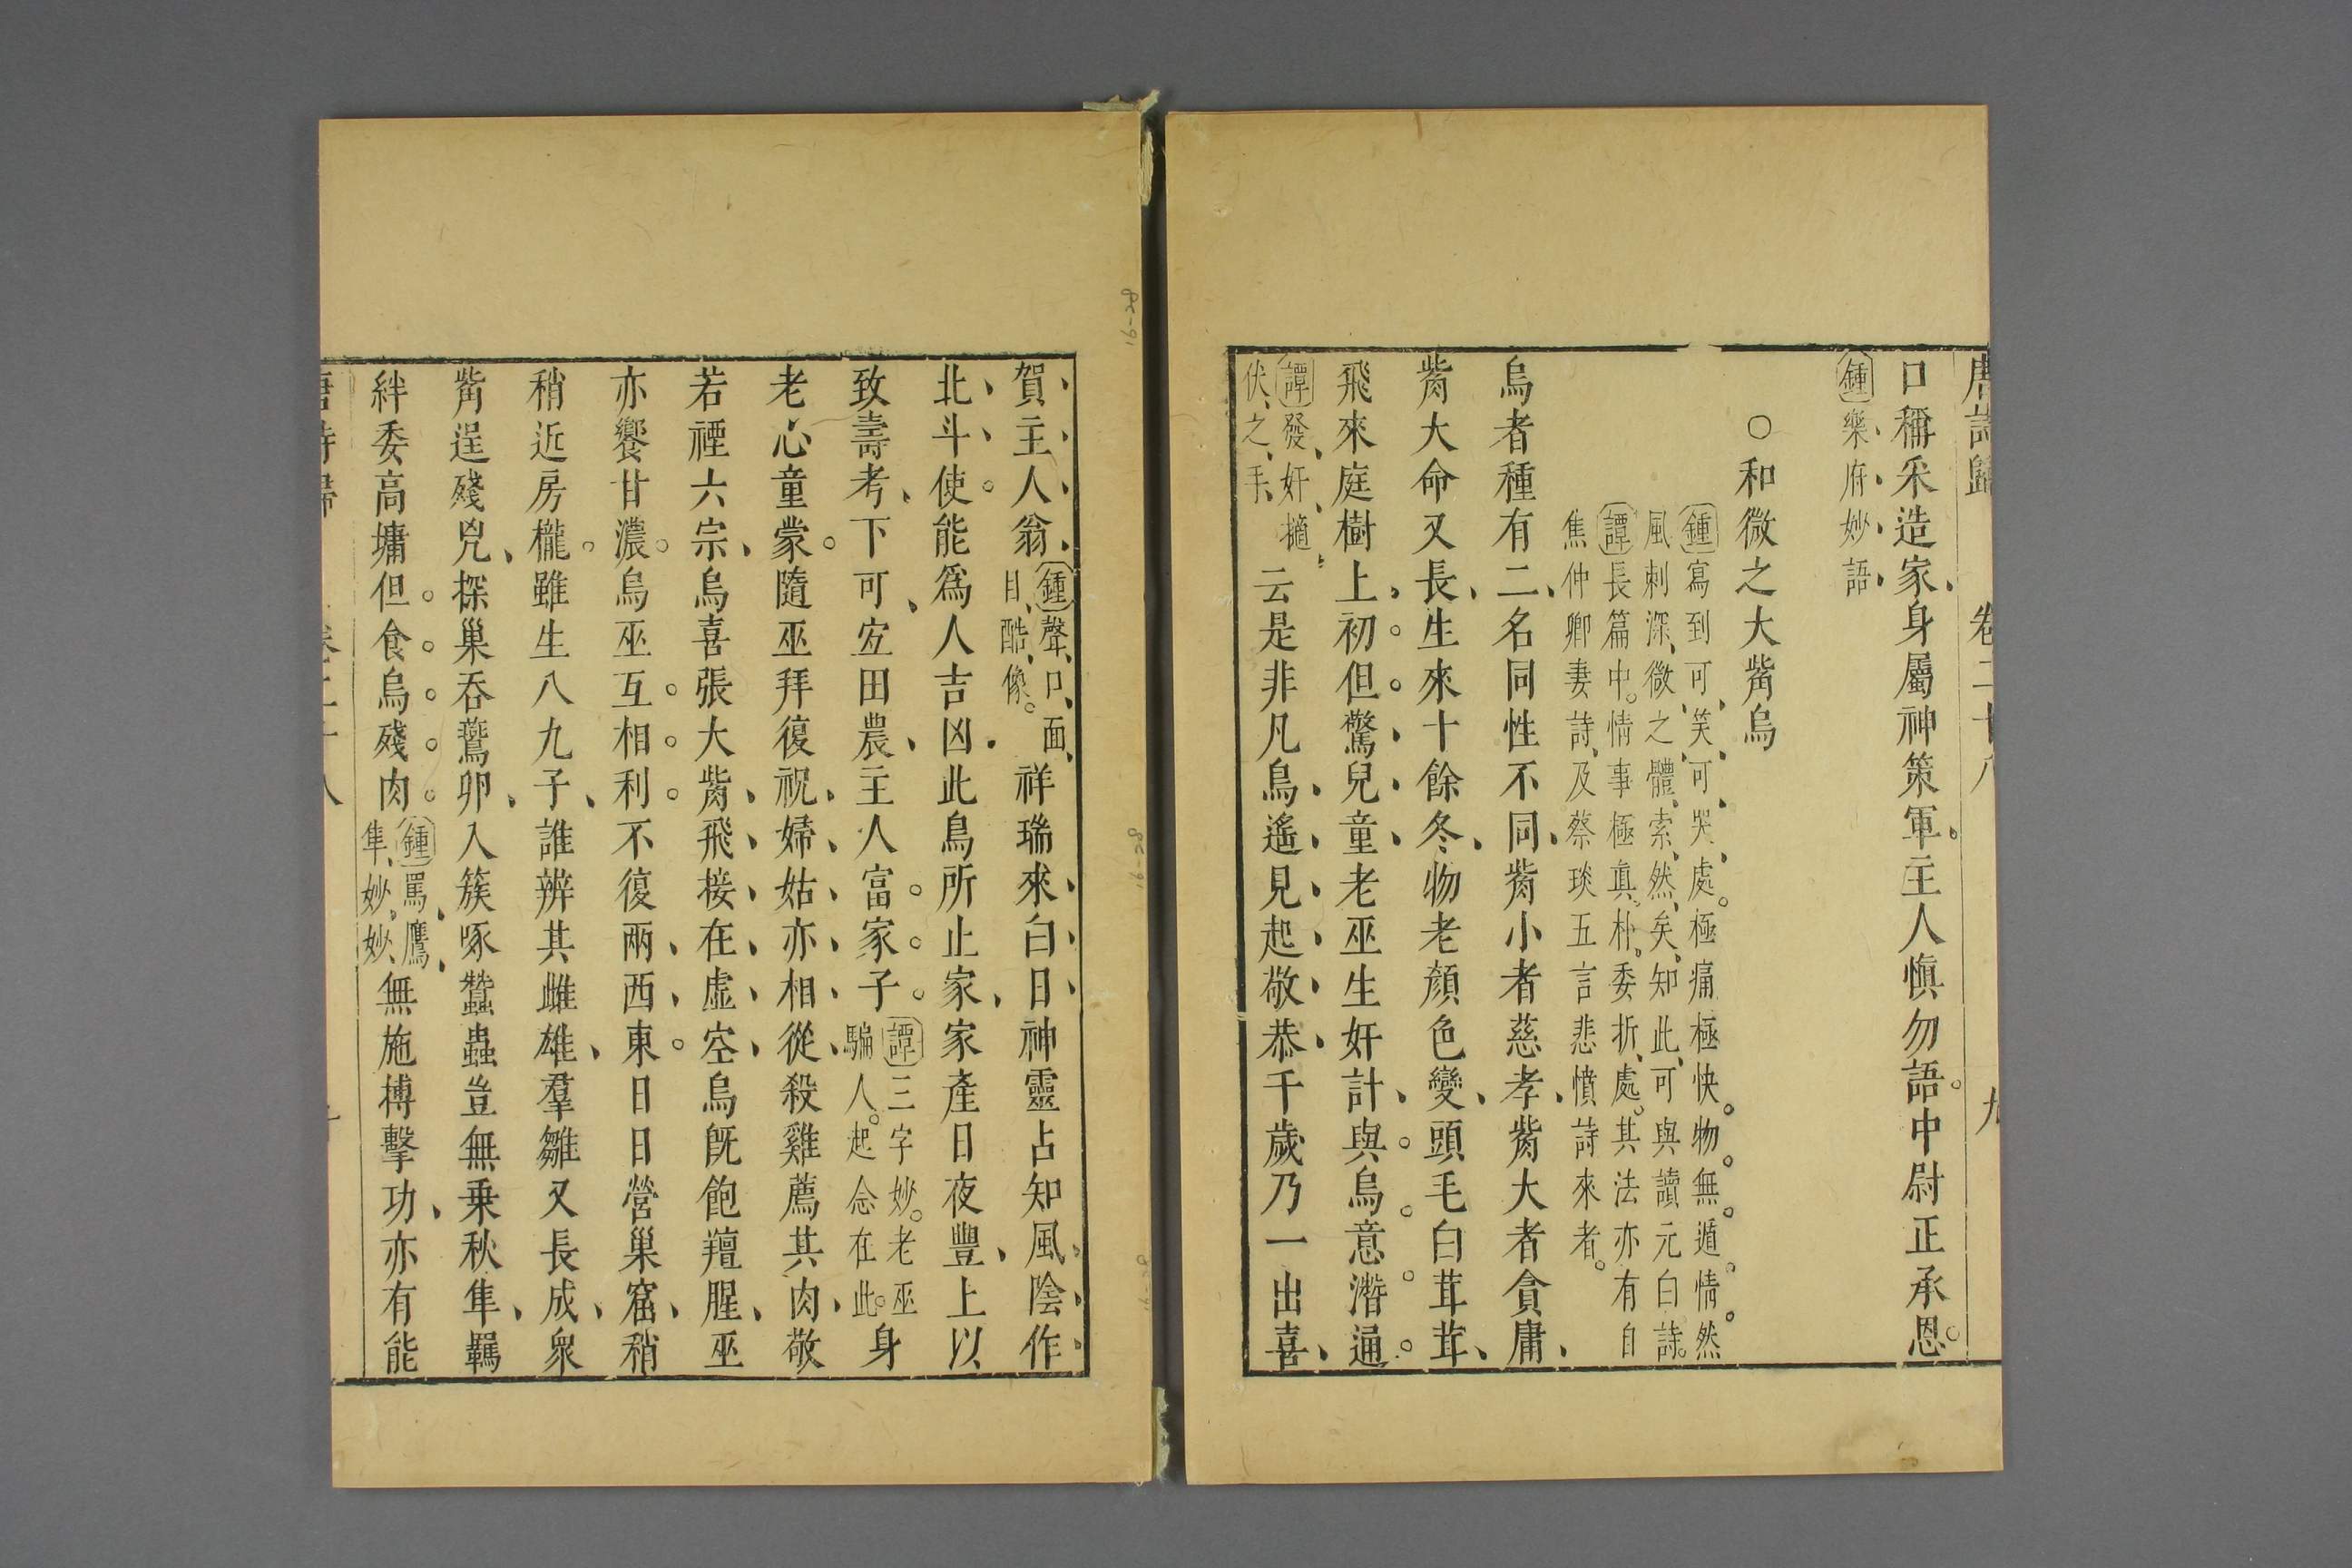 唐詩歸 卷二十八 九
口稱采造家身屬神策軍主人慎勿語中尉正承恩
鍾樂府妙語
○和微之大觜烏
鍾寫到可笑可哭處極痛極快物無遁情然
風刺深微之體索然矣知此可與讀元白詩
譚長篇中情事極真朴委折處其法亦有自
焦仲卿妻詩及蔡琰五言悲憤詩來者
烏者種有二名同性不同觜小者慈孝觜大者貪庸
觜大命又長生來十餘冬物老顏色變頭毛白茸茸
飛來庭樹上初但驚兒童老巫生奸計與烏意潛通
譚發奸擿
伏之手
云是非凡鳥遙見起敬恭千歲乃一出喜
賀主人翁
鍾聲口面
目酷像
祥瑞來白日神靈占知風陰作
北斗使能為人吉凶此鳥所止家家產日夜豐上以
致壽考下可宜田農主人富家子
譚三字妙老巫
騙人起念在此
身
老心童蒙隨巫拜復祝婦姑亦相從殺雞薦其肉敬
若禋六宗烏喜張大觜飛接在虛空烏既飽羶腥巫
亦饗甘濃烏巫互相利不復兩西東日日營巢窟稍
稍近房櫳雖生八九子誰辨其雌雄羣雛又長成眾
觜逞殘兇探巢吞鷰卵入簇啄蠶蟲豈無乗秋隼羈
絆委高墉但食烏殘肉
鍾罵鷹
隼妙妙
無施搏擊功亦有能